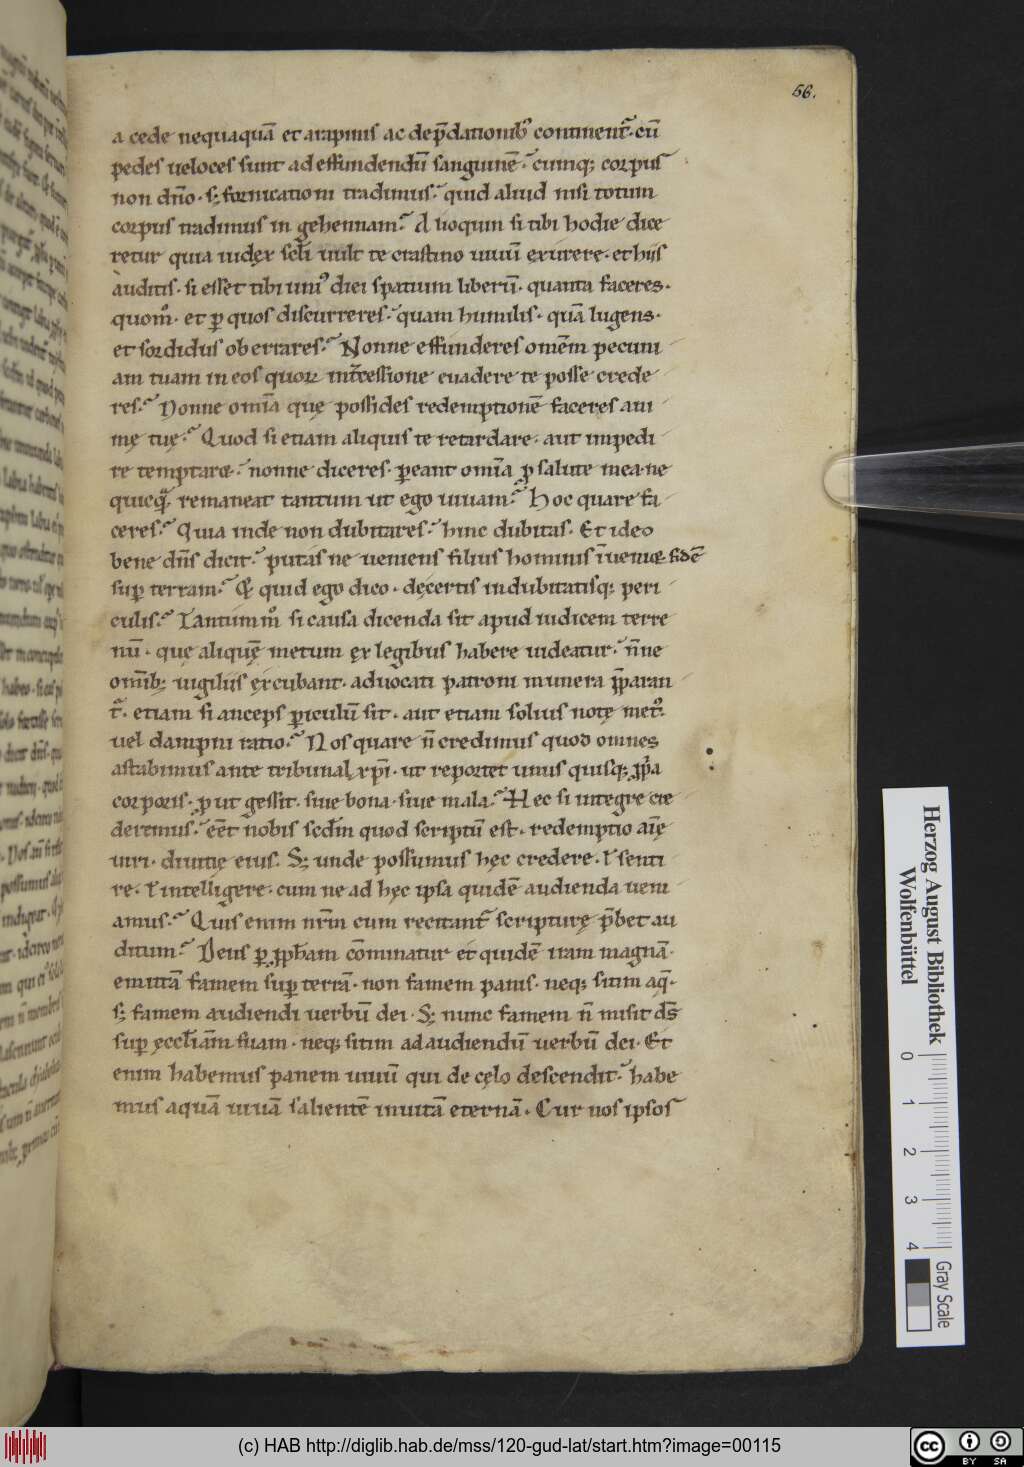 56.
a cede nequaquā et a rapinis ac dep̄dationib; continent᷑. cū
pedes ueloces sunt ad effundendū sanguinē. cumq; corpus
non dn̄o. s; fornicationi tradimus. quid aliud nisi totum
corpus tradimus in gehennam. Alioquin si tibi hodie dice
retur quia iudex sc̄li uult te crastino uiuū exurere. et hiis
auditis. si esset tibi uniꝰ diei spatium liberū. quanta faceres.
quom̊. et ꝑ quos discurreres. quam humilis. quā lugens.
et sordidus oberrares. Nonne effunderes omēm pecuni
am tuam in eos quoꝝ int̄cessione euadere te posse crede
res. Nonne omīa que possides redemptionē faceres ani
mę tuę. Quod si etiam aliquis te retardare. aut impedi
re temptaret. nonne diceres. ꝑeant omīa ꝓ salute mea. ne
quicq̄ remaneat tantum ut ego uiuam. Hoc quare fa
ceres. Quia inde non dubitares. hinc dubitas. Et ideo
bene dn̄s dicit. putas ne ueniens filius hominis īueniet fidē
suꝑ terram. Et quid ego dico. de certis indubitatisq; peri
culis. Tantummꝰ si causa dicenda sit apud iudicem terre
nū. que aliquē metum ex legibus habere uideatur. n̄ne
omīb; uigiliis excubant. aduocati patroni munera p̄paran
t᷑. etiam si anceps ꝑiculū sit. aut etiam solius notę metꝰ.
uel dampni ratio. Nos quare n̄ credimus quod omnes
astabimus ante tribunal xp̄i. ut reportet unus quisq; ꝓp̄a
corporis. ꝓut gessit. siue bona. siue mala. Hec si integre cre
deremus. eēt nobis scd̄m quod scriptū est. redemptio aīę
uiri. diuitię eius. S; unde possumus hęc credere. ł senti
re. ł intelligere. cum ne ad hęc ipsa quidē audienda ueni
amus. Quis enim nr̄m cum recitant᷑ scripturę p̄bet au
ditum. Deus ꝑ ꝓph̄am cōminatur et quidē iram magnā.
emittā famem suꝑ terrā. non famem panis. neq; sitim aq̄.
s; famem audiendi uerbū dei. S; nunc famem n̄ misit dꝰs
suꝑ eccl̄iam suam. neq; sitim ad audiendū uerbū dei. Et
enim habemus panem uiuū qui de cęlo descendit. habe
mus aquā uiuā salientē inuitā eternā. Cur nos ipsos
Herzog August Bibliothek
Wolfenbüttel
0 1 2 3 4
Gray Scale
(c) HAB http://diglib.hab.de/mss/120-gud-lat/start.htm?image=00115
cc BY SA